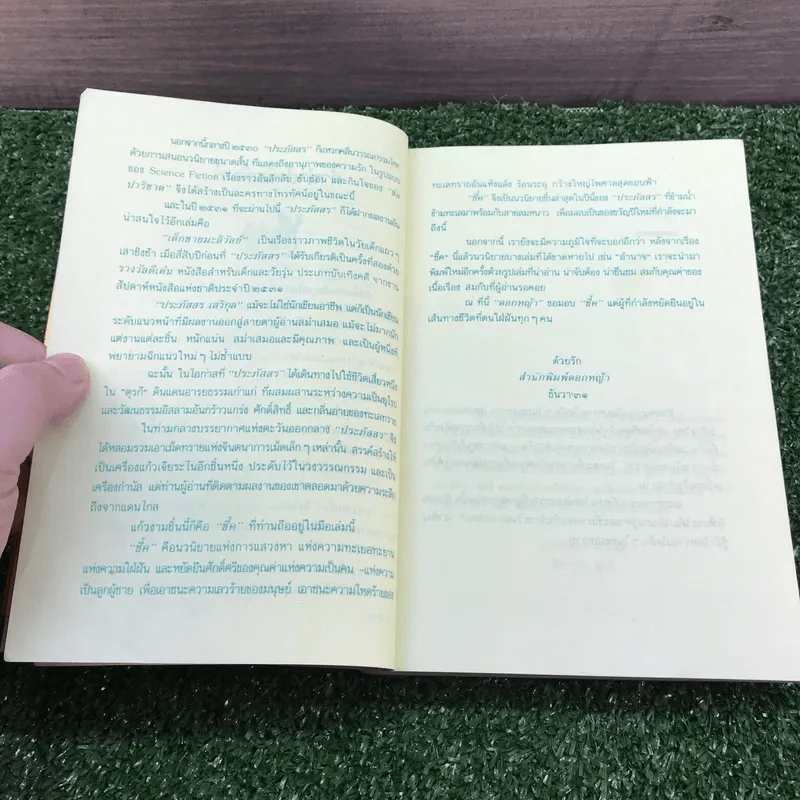 นอกจากนี้กลางปี ๒๕๓๐ "ประภัสสร" ก็แหวกคลื่นวรรณกรรมไทย
ด้วยการเสนอนวนิยายขนาดสั้น ที่แสดงถึงอานุภาพของความรัก ในรูปแบบ
ของ Science Fiction เรื่องราวอันลึกลับ ซับซ้อน และกินใจของ "ชื่อ
ปาริชาต" จึงได้สร้างเป็นละครทางโทรทัศน์อยู่ในขณะนี้
และในปี ๒๕๓๑ ที่จะผ่านไปนี้ "ประภัสสร" ก็ได้ฝากผลงานอัน
น่าสนใจไว้อีกเล่มคือ
"เด็กชายมะลิวัลย์" เป็นเรื่องราวภาพชีวิตในวัยเด็กแถว ๆ
เสาชิงช้า เมื่อสี่สิบปีก่อนที่ "ประภัสสร" ได้รับเกียรติเป็นครั้งที่สองด้วย
รางวัลดีเด่น หนังสือสำหรับเด็กและวัยรุ่น ประเภทบันเทิงคดี จากงาน
สัปดาห์หนังสือแห่งชาติประจำปี ๒๕๓๑
"ประภัสสร เสวิกุล" แม้จะไม่ใช่นักเขียนอาชีพ แต่ก็เป็นนักเขียน
ระดับแนวหน้าที่มีผลงานออกสู่สายตาผู้อ่านสม่ำเสมอ แม้จะไม่มากนัก
แต่งานแต่ละชิ้น หนักแน่น สม่ำเสมอและมีคุณภาพ และเป็นผู้หนึ่งที่
พยายามฉีกแนวใหม่ ๆ ไม่ซ้ำแบบ
ฉะนั้น ในโอกาสที่ "ประภัสสร" ได้เดินทางไปใช้ชีวิตเสี้ยวหนึ่ง
ใน "ตุรกี" ดินแดนอารยธรรมเก่าแก่ ที่ผสมผสานระหว่างความเป็นยุโรป
และวัฒนธรรมอิสลามอันกร้าวแกร่ง ศักดิ์สิทธิ์ และกลิ่นอายของทะเลทราย
ในท่ามกลางบรรยากาศแห่งตะวันออกกลาง "ประภัสสร" จึง
ได้หลอมรวมเอาเม็ดทรายแห่งจินตนาการเม็ดเล็ก ๆ เหล่านั้น สรรค์สร้างให้
เป็นเครื่องแก้วเจียระไนอีกชิ้นหนึ่ง ประดับไว้ในวงวรรณกรรม และเป็น
เครื่องกำนัล แด่ท่านผู้อ่านที่ติดตามผลงานของเขาตลอดมาด้วยความระลึก
ถึงจากแดนไกล
แก้วงามชิ้นนี้ก็คือ "ชี้ค" ที่ท่านถืออยู่ในมือเล่มนี้
"ชี้ค" คือนวนิยายแห่งการแสวงหา แห่งความทะเยอทะยาน
แห่งความใฝ่ฝัน และหยัดยืนศักดิ์ศรีของคุณค่าแห่งความเป็นคน -แห่งความ
เป็นลูกผู้ชาย เพื่อเอาชนะความเลวร้ายของมนุษย์ เอาชนะความโหดร้ายของ
ทะเลทรายอันแห้งแล้ง ร้อนระอุ กว้างใหญ่ไพศาลสุดขอบฟ้า
"ชี้ค" จึงเป็นนวนิยายชิ้นล่าสุดในปีนี้ของ "ประภัสสร" ที่ข้ามน้ำ
ข้ามทะเลมาพร้อมกับสายลมหนาว เพื่อมอบเป็นของขวัญปีใหม่ที่กำลังจะมา
ถึงนี้
นอกจากนี้ เรายังจะมีความภูมิใจที่จะบอกอีกว่า หลังจากเรื่อง
"ชี้ค" นี้แล้วนวนิยายบางเล่มที่ได้ขาดหายไป เช่น "อำนาจ" เราจะนำมา
พิมพ์ใหม่อีกครั้งด้วยรูปเล่มที่น่าอ่าน น่าจับต้อง น่าชื่นชม สมกับคุณค่าของ
เนื้อเรื่อง สมกับที่ผู้อ่านรอคอย
ณ ที่นี้ "ดอกหญ้า" ขอมอบ "ชี้ค" แด่ผู้ที่กำลังหยัดยืนอยู่ใน
เส้นทางชีวิตที่ตนใฝ่ฝันทุก ๆ คน
ด้วยรัก
สำนักพิมพ์ดอกหญ้า
ธันวา'๓๑